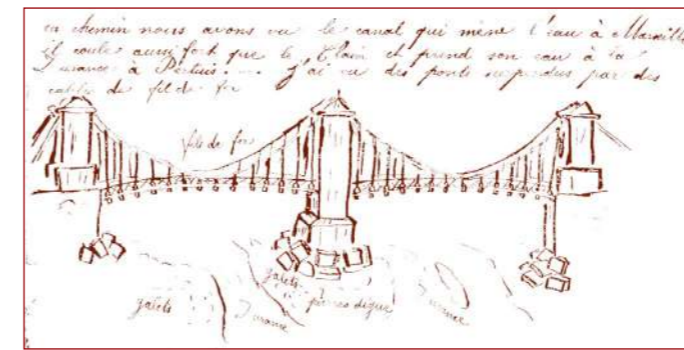 en chemin nous avons vu le canal qui mène l'eau à Marseille
il coule aussi fort que le Clain et prend son eau à la
Durance à Pertuis. ... J'ai vu des ponts suspendus par des
cables de fil de fer
fils de fer
galets
galets
Durance
pierres digue
Durance